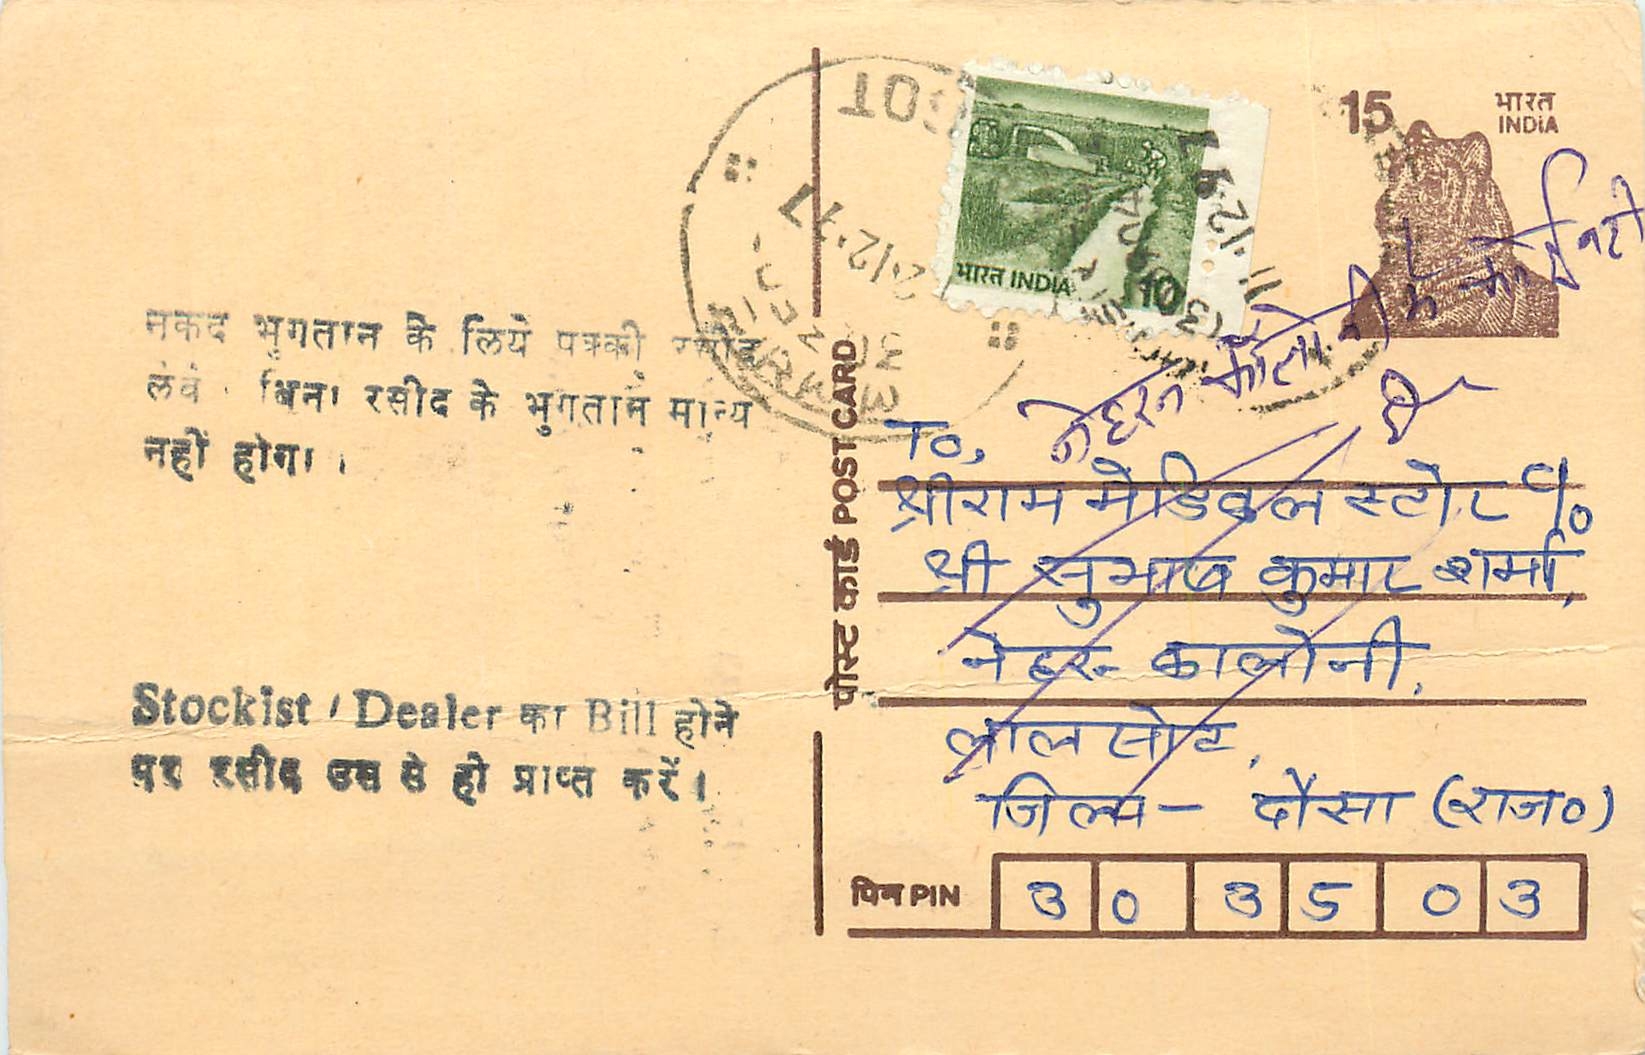 नकद भुगतान के लिये पक्की रसीद
लेवें । बिना रसीद के भुगतान मान्य
नहीं होगा ।
Stockist / Dealer का Bill होने
पर रसीद उस से ही प्राप्त करें ।
पोस्ट कार्ड POST CARD
भारत INDIA 10
15
भारत
INDIA
नेहरू कॉलोनी में कोई नहीं
है
To,
श्रीराम मेडिकल स्टोर C/o
श्री सुभाष कुमार शर्मा,
नेहरू कालोनी,
लालसोट,
जिला - दौसा (राज०)
पिन PIN 3 0 3 5 0 3